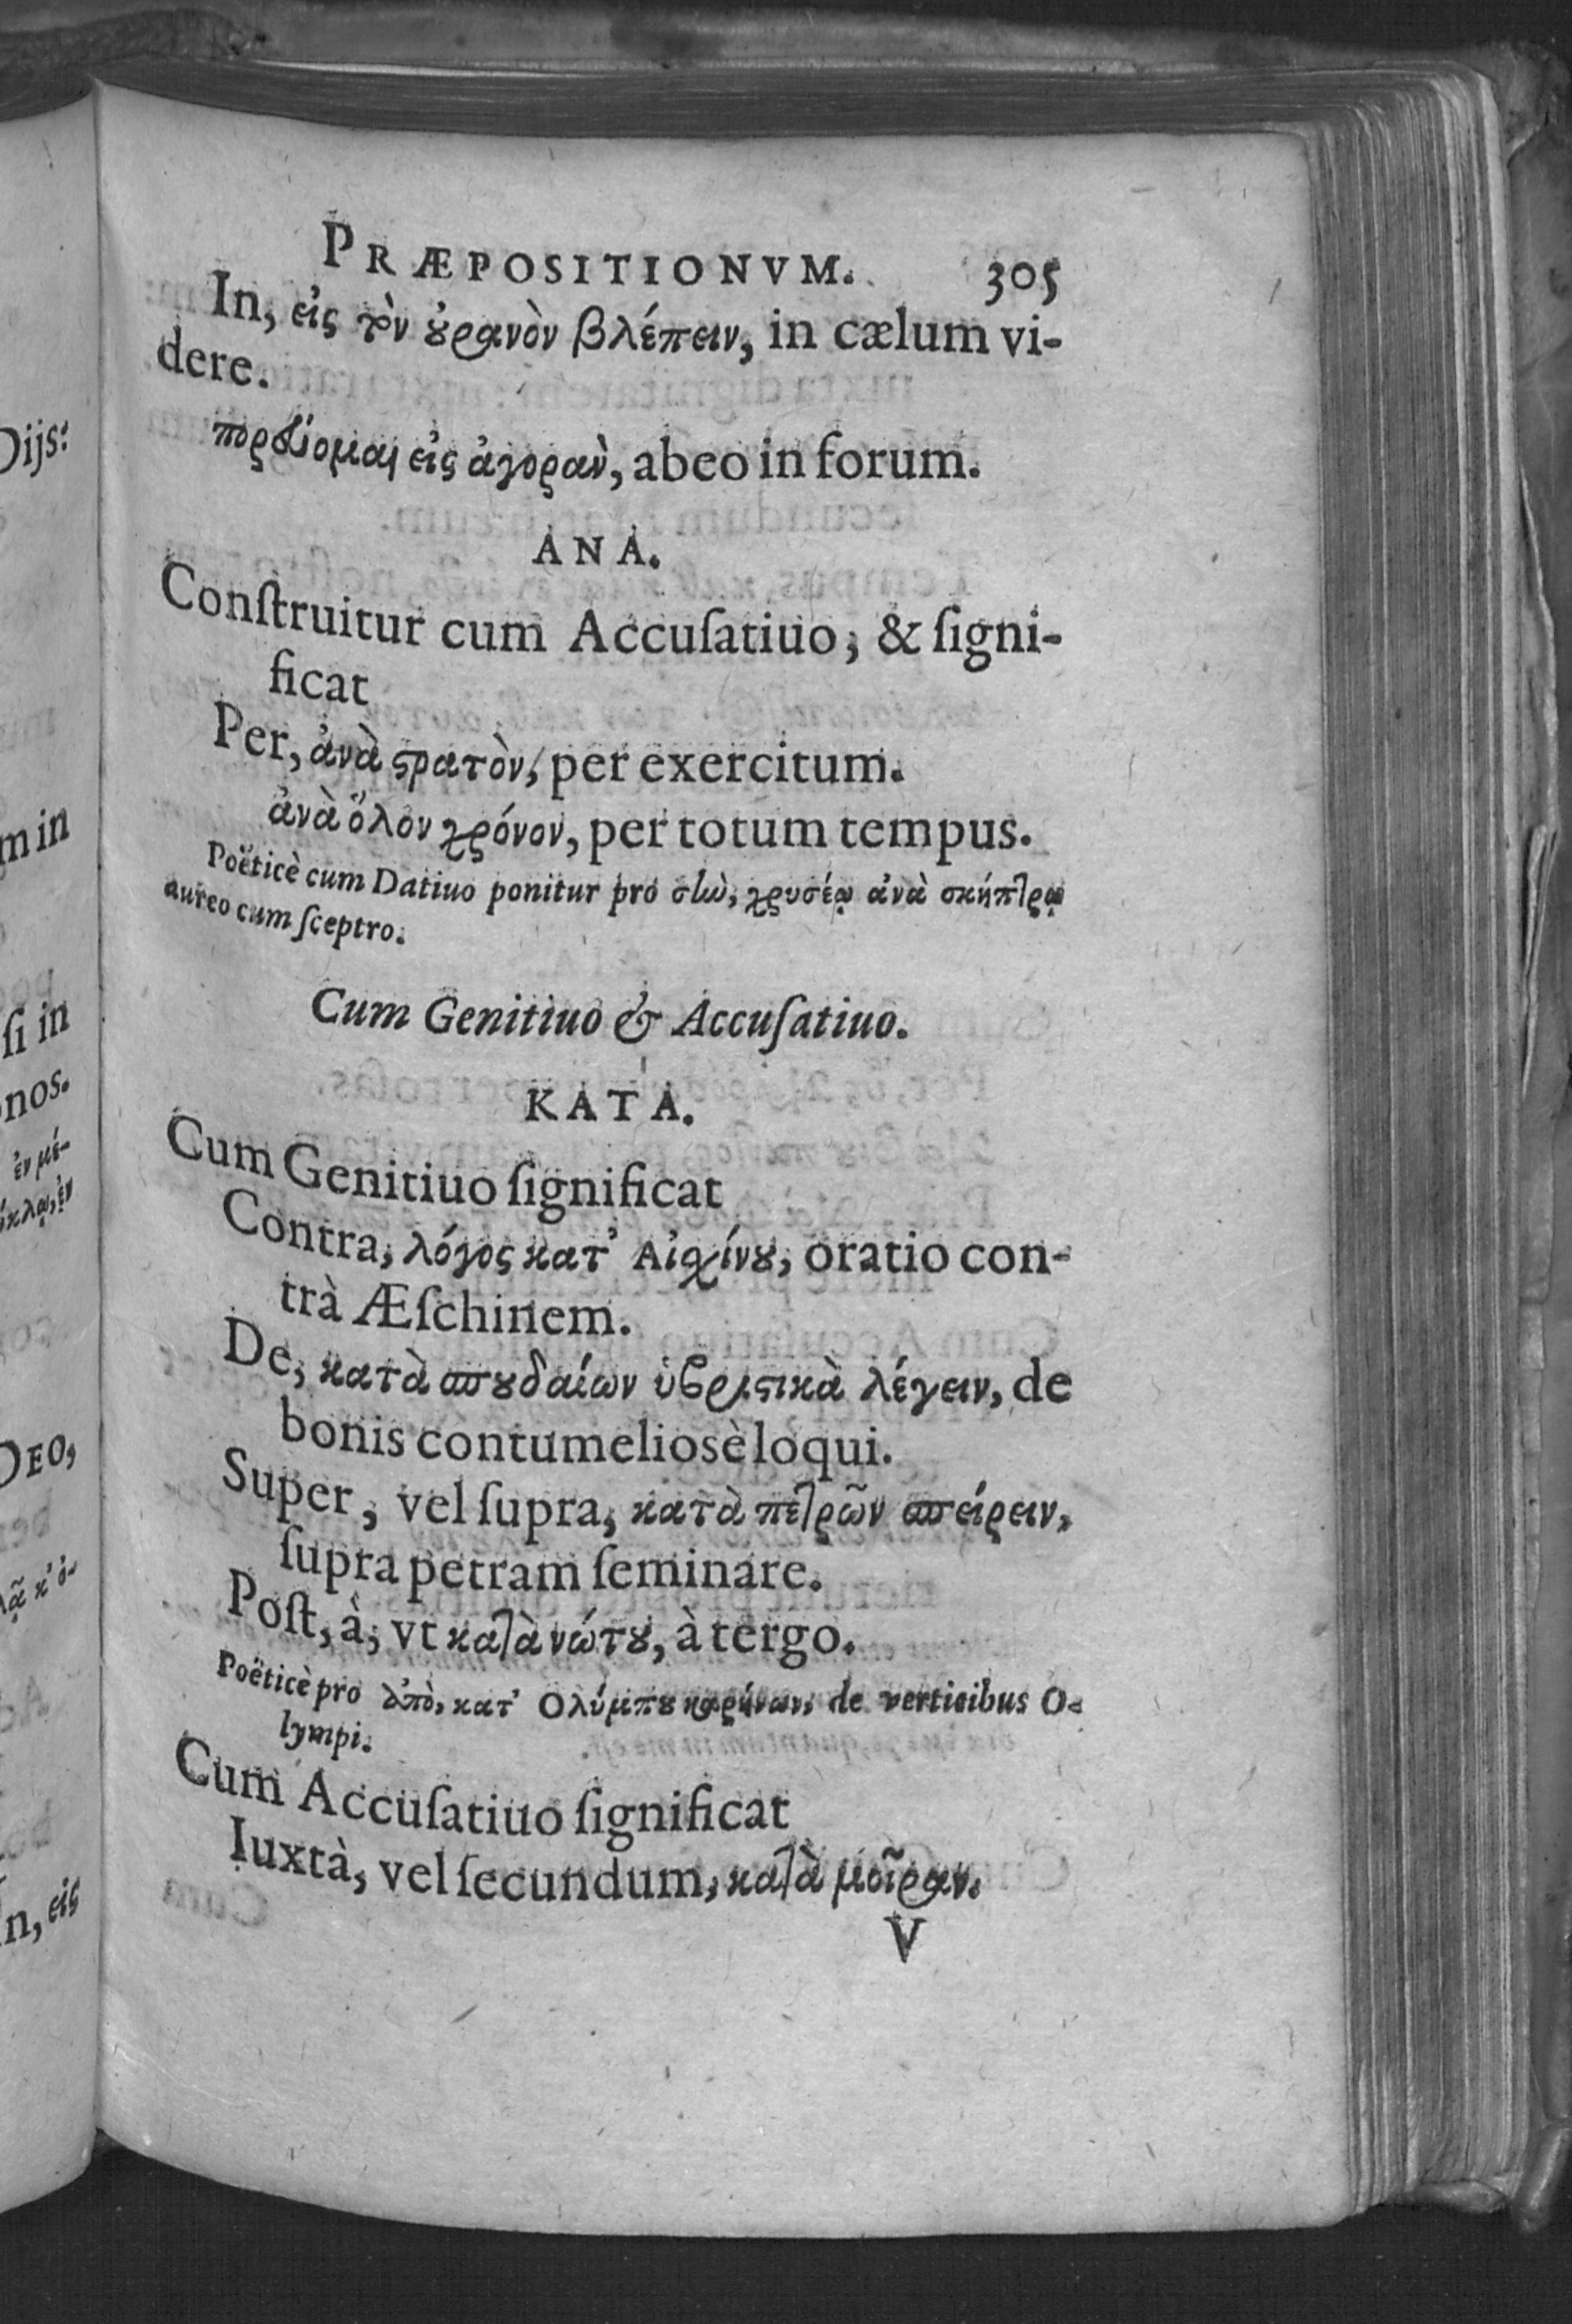 PRÆPOSITIONVM. 305
In, εἰς τὸν ȣ̓ρανὸν βλέπειν, in cælum vi-
dere.
πορεύομαι εἰς ἀγορὰν, abeo in forum.
ΑΝΑ.
Conſtruitur cum Accuſatiuo, & ſigni-
ficat
Per, ἀνὰ ϛρατὸν, per exercitum.
ἀνὰ ὅλον χρόνον, per totum tempus.
Poëticè cum Datiuo ponitur pro σὺν, χρυσέῳ ἀνὰ σκήπτρῳ
aureo cum ſceptro.
Cum Genitiuo & Accuſatiuo.
ΚΑΤΑ.
Cum Genitiuo ſignificat
Contra, λόγος κατ' Αἰσχίνȣ, oratio con-
trà Æſchinem.
De, κατὰ σπȣδαίων ὑβριϛικὰ λέγειν, de
bonis contumeliosè loqui.
Super, vel ſupra, κατὰ πετρῶν σπείρειν,
ſupra petram ſeminare.
Poſt, à, vt κατὰ νώτȣ, à tergo.
Poëticè pro ἀπὸ, κατ' Ολύμπȣ καρήνων, de verticibus O-
lympi.
Cum Accuſatiuo ſignificat
Iuxtà, vel ſecundum, κατὰ μοῖραν.
V
Dijs:
m in
ſi in
nos.
ἐν μέ-
DEO,
n, εἰς